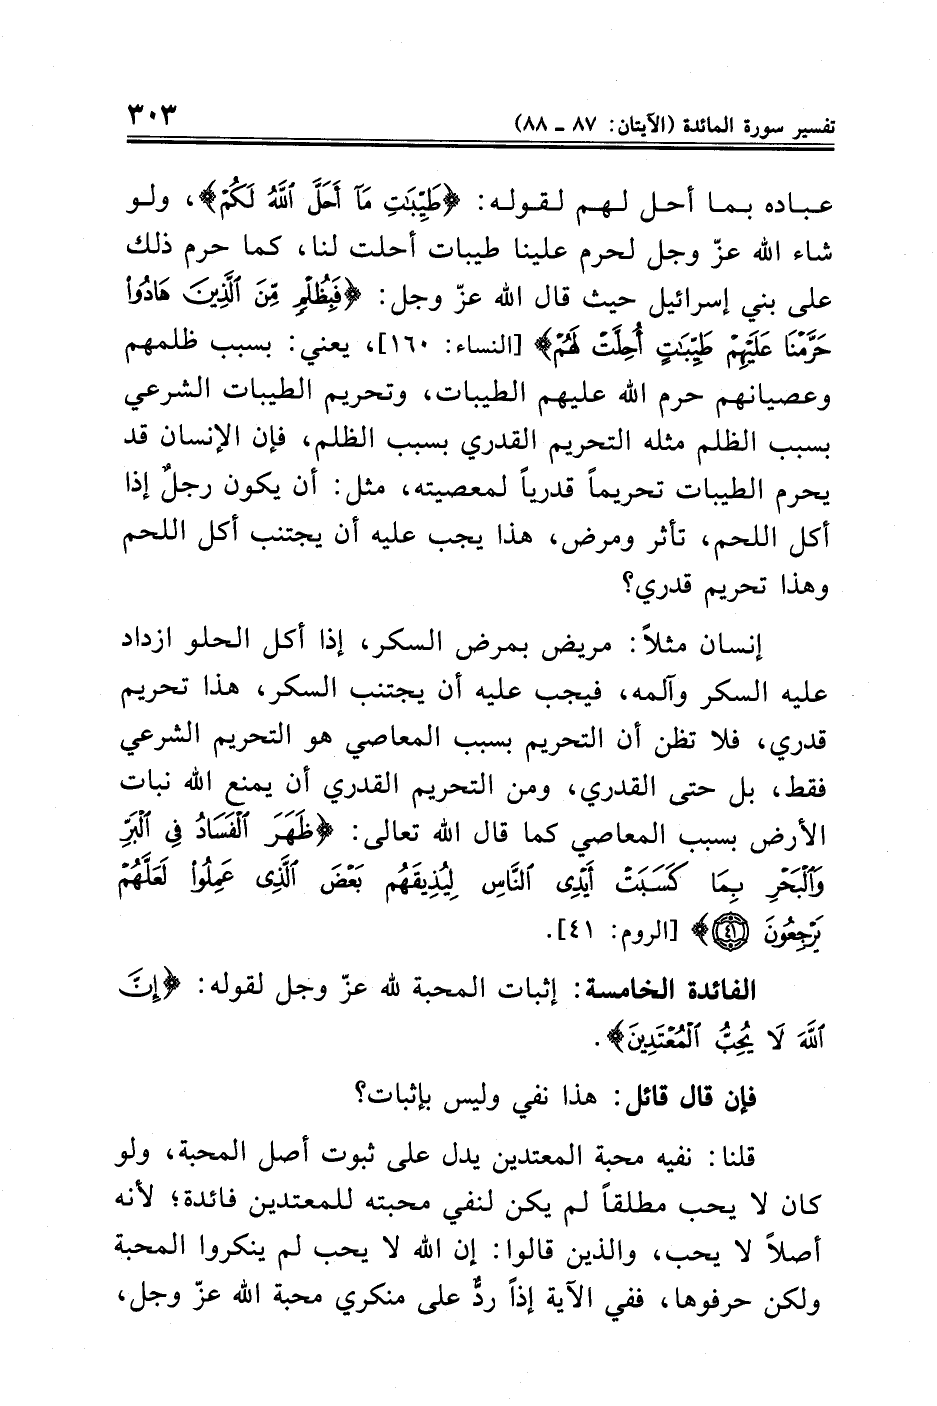 تفسير سورة المائدة (الآيتان: ٨٧ ـ ٨٨) ٣٠٣
عباده بما أحل لهم لقوله: ﴿طَيِّبَٰتِ مَآ أَحَلَّ ٱللَّهُ لَكُمْ﴾، ولو
شاء الله عزّ وجل لحرم علينا طيبات أحلت لنا، كما حرم ذلك
على بني إسرائيل حيث قال الله عزّ وجل: ﴿فَبِظُلْمٍ مِّنَ ٱلَّذِينَ هَادُوا۟
حَرَّمْنَا عَلَيْهِمْ طَيِّبَٰتٍ أُحِلَّتْ لَهُمْ﴾ [النساء: ١٦٠]، يعني: بسبب ظلمهم
وعصيانهم حرم الله عليهم الطيبات، وتحريم الطيبات الشرعي
بسبب الظلم مثله التحريم القدري بسبب الظلم، فإن الإنسان قد
يحرم الطيبات تحريماً قدرياً لمعصيته، مثل: أن يكون رجلٌ إذا
أكل اللحم، تأثر ومرض، هذا يجب عليه أن يجتنب أكل اللحم
وهذا تحريم قدري؟
إنسان مثلاً: مريض بمرض السكر، إذا أكل الحلو ازداد
عليه السكر وآلمه، فيجب عليه أن يجتنب السكر، هذا تحريم
قدري، فلا تظن أن التحريم بسبب المعاصي هو التحريم الشرعي
فقط، بل حتى القدري، ومن التحريم القدري أن يمنع الله نبات
الأرض بسبب المعاصي كما قال الله تعالى: ﴿ظَهَرَ ٱلْفَسَادُ فِى ٱلْبَرِّ
وَٱلْبَحْرِ بِمَا كَسَبَتْ أَيْدِى ٱلنَّاسِ لِيُذِيقَهُم بَعْضَ ٱلَّذِى عَمِلُوا۟ لَعَلَّهُمْ
يَرْجِعُونَ ٤١﴾ [الروم: ٤١].
الفائدة الخامسة: إثبات المحبة لله عزّ وجل لقوله: ﴿إِنَّ
ٱللَّهَ لَا يُحِبُّ ٱلْمُعْتَدِينَ﴾.
فإن قال قائل: هذا نفي وليس بإثبات؟
قلنا: نفيه محبة المعتدين يدل على ثبوت أصل المحبة، ولو
كان لا يحب مطلقاً لم يكن لنفي محبته للمعتدين فائدة؛ لأنه
أصلاً لا يحب، والذين قالوا: إن الله لا يحب لم ينكروا المحبة
ولكن حرفوها، ففي الآية إذاً ردٌّ على منكري محبة الله عزّ وجل،